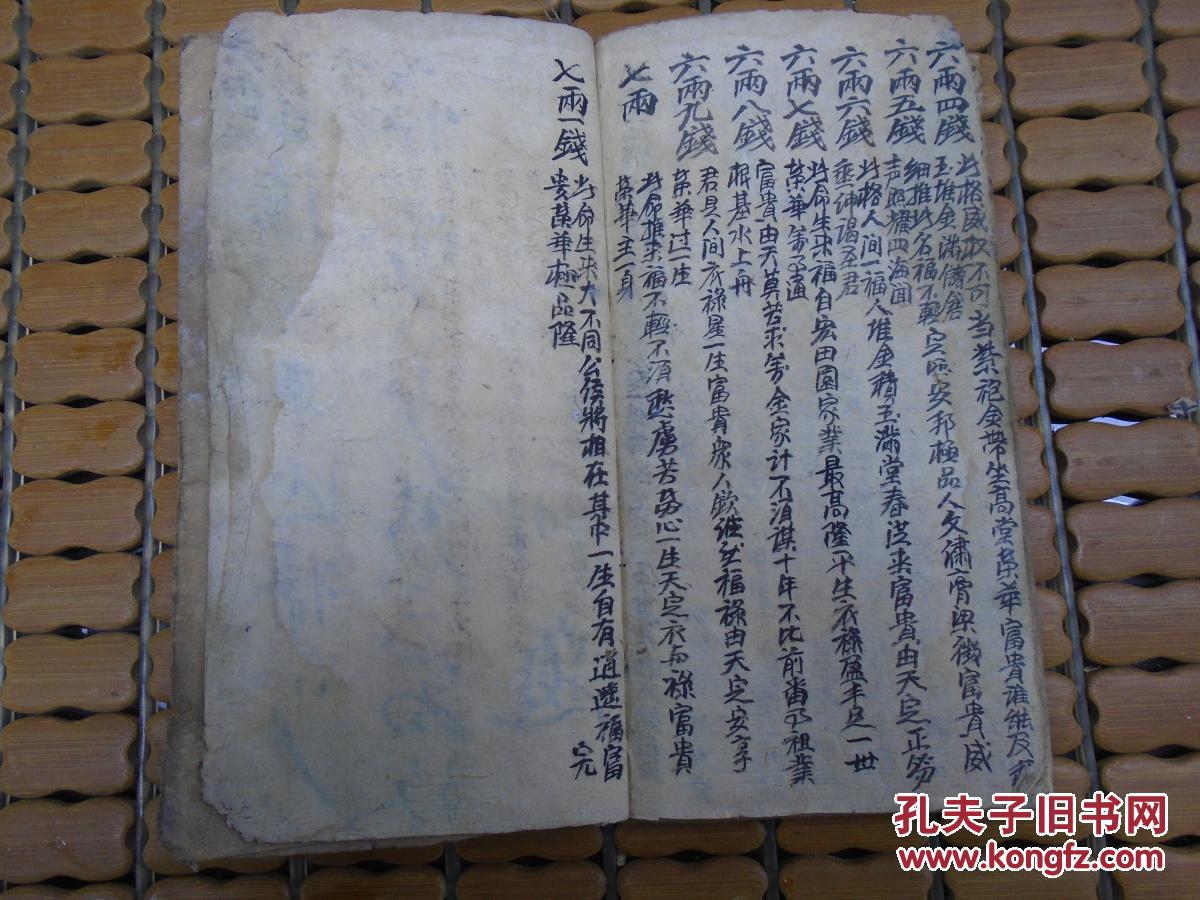 六兩四錢
此格威权不可当紫袍金帶坐高堂荣華富貴谁能及
玉堆金滿儲倉
六兩五錢
细推此名福不輕定照安邦極品人文繍富貴威
声照耀四海闻
六兩六錢
此格人间一福人堆金積玉滿堂春從来富貴由天定正笏
垂绅谒圣君
六兩七錢
此命生来福自宏田園家業最高隆平生衣祿盈丰足一世
荣華萬事通
六兩八錢
富貴由天莫苦求萬金家计不須謀十年不比前番事祖業
根基水上舟
六兩九錢
君是人间衣祿星一生富貴众人欽縱然福祿由天定安享
荣華过一生
七兩
此命推来福不輕不須愁虑苦劳心一生天定衣与祿富貴
荣華主一身
七兩一錢
此命生来大不同公侯將相在其中一生自有逍遥福富
贵荣華極品隆
完
孔夫子旧书网
www.kongfz.com